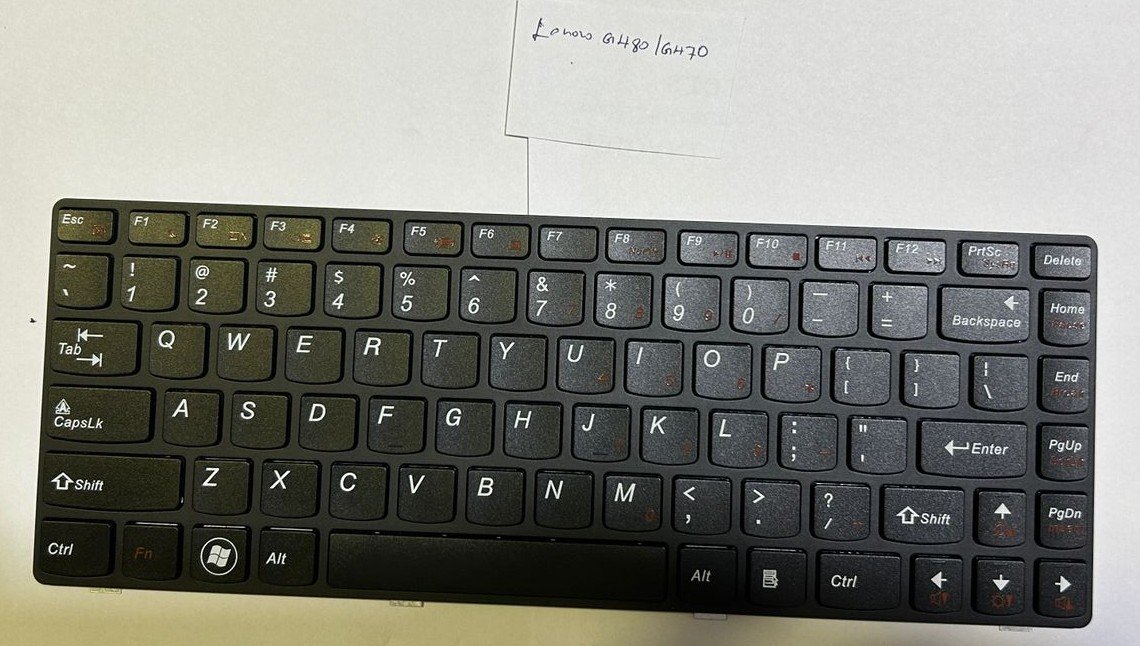 Lenovo G480/G470
Esc F1 F2 F3 F4 F5 F6 F7 F8 F9 F10 F11 F12 PrtSc Delete
~ ` ! 1 @ 2 # 3 $ 4 % 5 ^ 6 & 7 * 8 ( 9 ) 0 — - + = Backspace Home
Tab Q W E R T Y U I O P { [ } ] ¦ \ End
A CapsLk A S D F G H J K L : ; " ' Enter PgUp
Shift Z X C V B N M < , > . ? / Shift PgDn
Ctrl Fn Alt Alt Ctrl